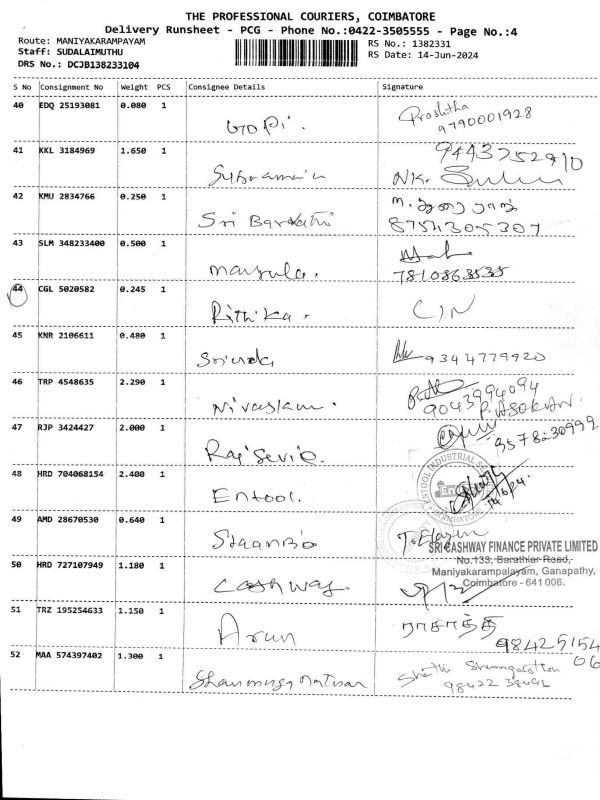 THE PROFESSIONAL COURIERS, COIMBATORE
Delivery Runsheet - PCG - Phone No.:0422-3505555 - Page No.:4
Route: MANIYAKARAMPAYAM
Staff: SUDALAIMUTHU
DRS No.: DCJB138233104
RS No.: 1382331
RS Date: 14-Jun-2024
S No Consignment No Weight PCS Consignee Details Signature
40 EDQ 25193081 0.080 1 Gopi. Proshitha
9790001928
41 KKL 3184969 1.650 1 9443752810
NK.
42 KMU 2834766 0.250 1 Sri
8754305307
43 SLM 348233400 0.500 1
7810868535
44 CGL 5020582 0.245 1 Rithika. CIN
45 KNR 2106611 0.480 1 9344779920
46 TRP 4548635 2.290 1
9043994094
P. ASOKAN.
47 RJP 3424427 2.000 1 9578230999
48 HRD 704068154 2.400 1 Entool.
ENTOOL INDUSTRIAL
COIMBATORE
14/6/24
49 AMD 28670530 0.640 1
SRI CASHWAY FINANCE PRIVATE LIMITED
No.133, Barathiar Road,
Maniyakarampalayam, Ganapathy,
Coimbatore - 641 006.
50 HRD 727107949 1.180 1 Cashway
51 TRZ 195254633 1.150 1 Arun ராசாத்தி
98425154
06
52 MAA 574397402 1.300 1
98422 38491